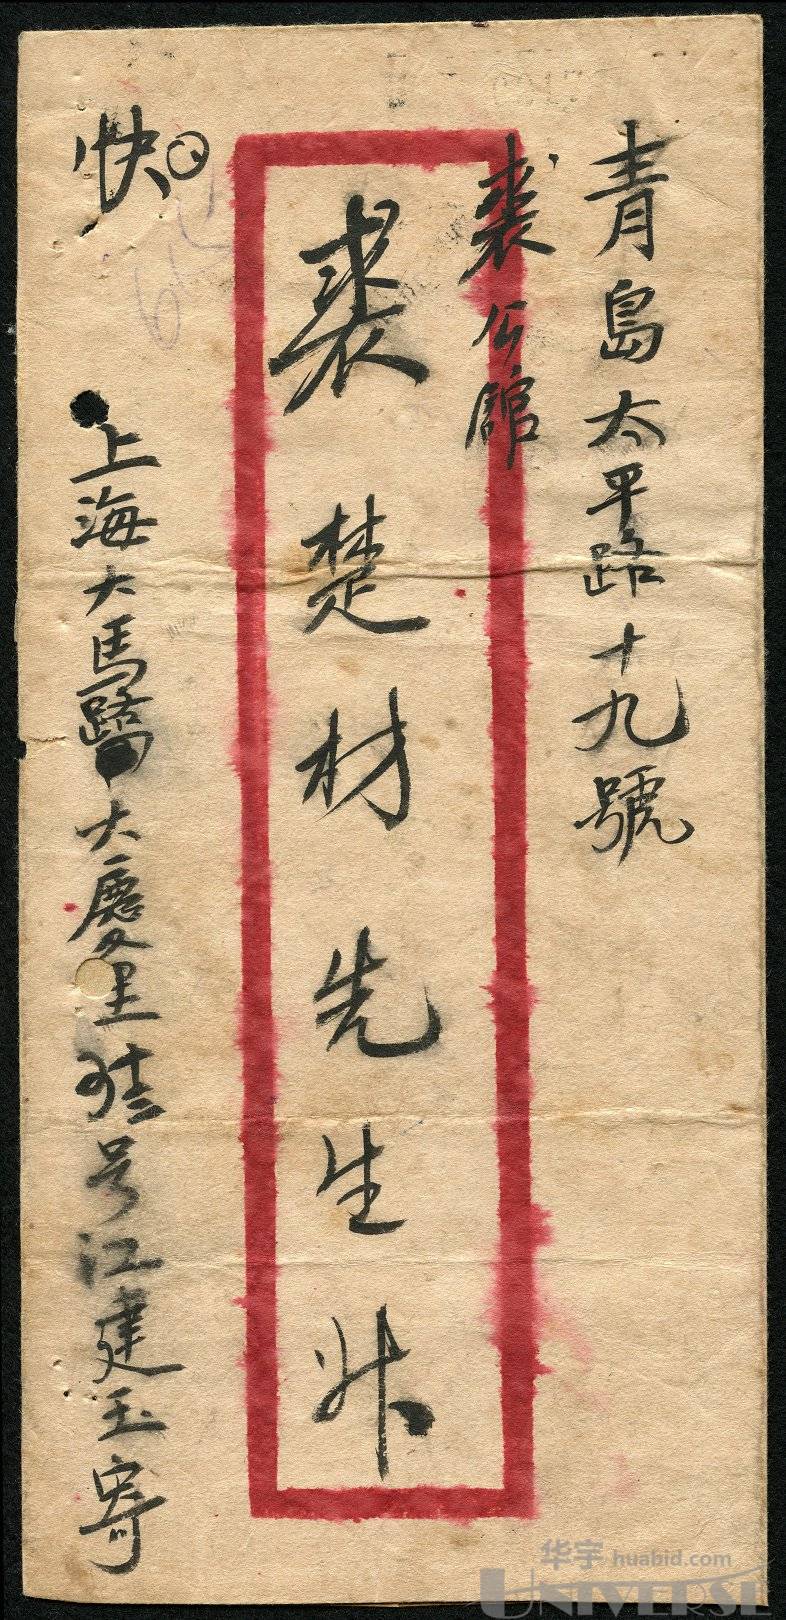 青島太平路十九號
裘公館
裘楚材先生
快
上海大馬路大慶里号江建玉寄
华宇 huabid.com
UNIVERSE